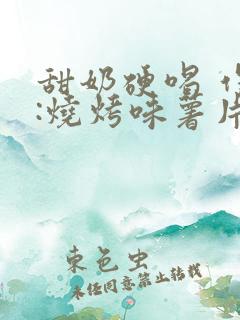 甜奶硬喝
:燒烤味薯片
東色虫
未经同意禁止转载